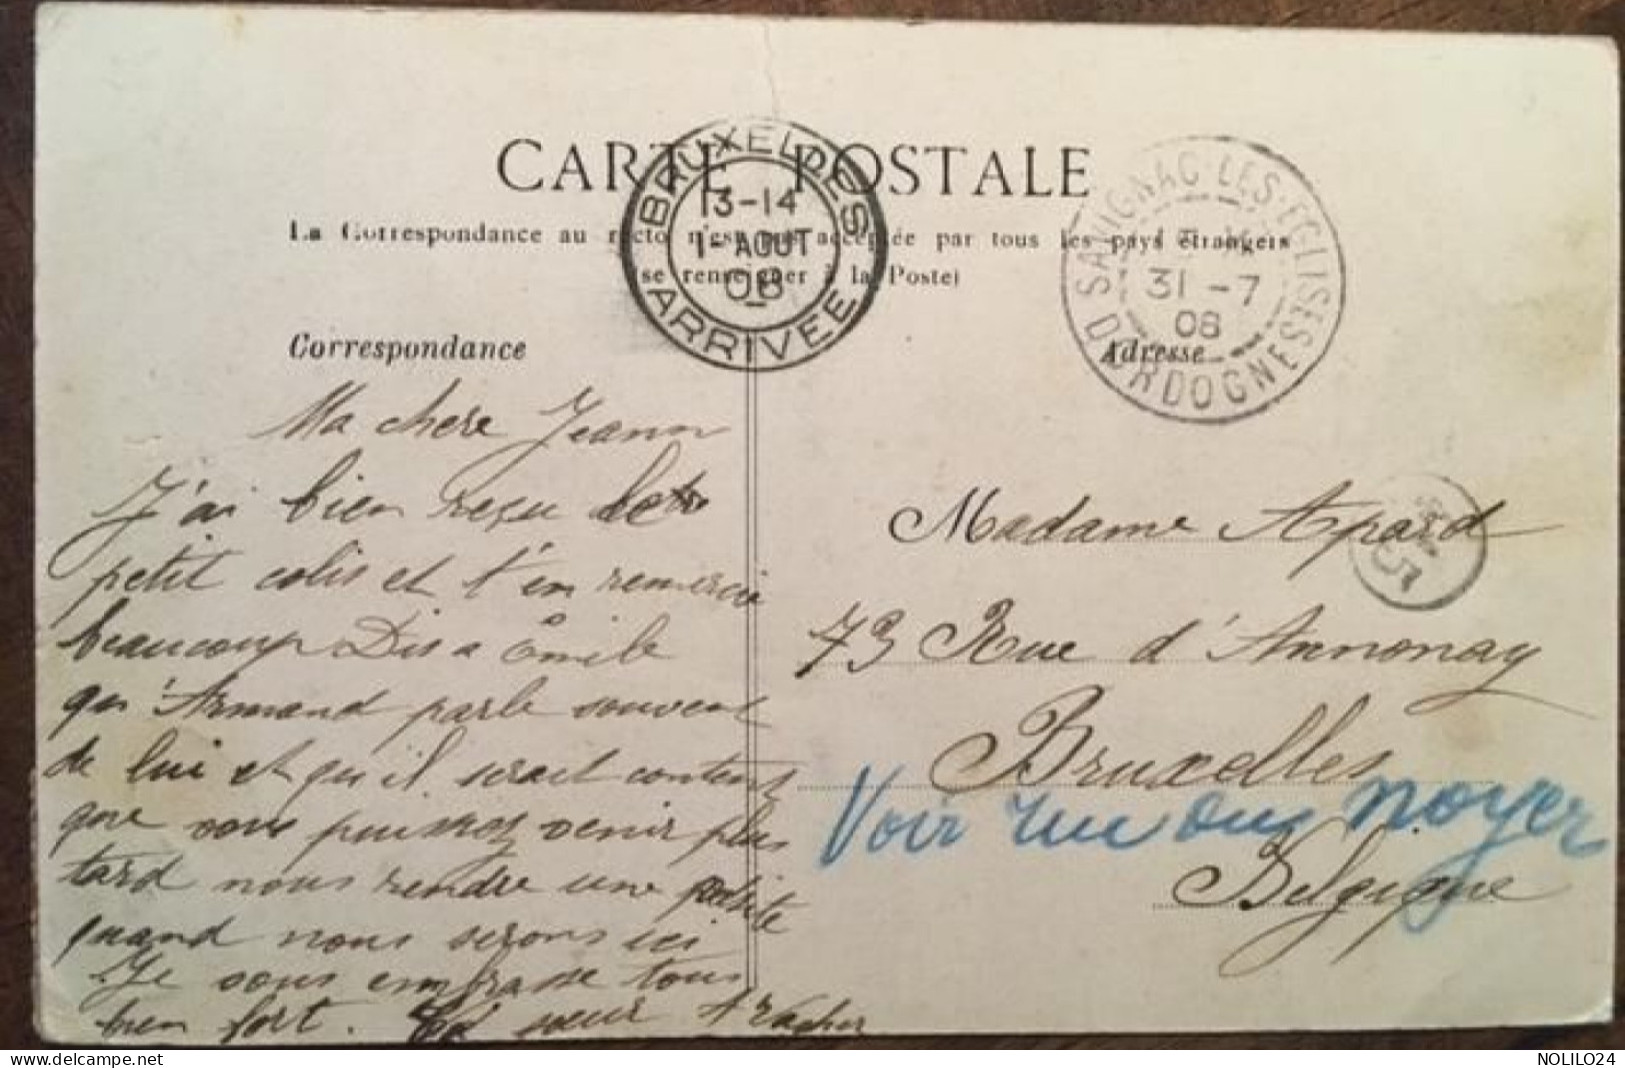 CARTE POSTALE
La Correspondance au recto n'est pas acceptée par tous les pays étrangers
(se renseigner à la Poste)
BRUXELLES
13-14
1-AOUT
08
ARRIVEE
SAVIGNAC-LES-EGLISES
31-7
08
DORDOGNE
Correspondance
Adresse
Ma chere Jeann
J'ai bien reçu le
petit colis et t'en remercie
beaucoup Dis a Émile
qu'Armand parle souvent
de lui et qu'il serait content
que vous puissiez venir plus
tard nous rendre une petite
quand nous serons ici
Je vous embrasse tous
bien fort. Ta sœur
Madame Apard
73 Rue d'Annonay
Bruxelles
Voir rue du noyer
Belgique
5
NOLILO24